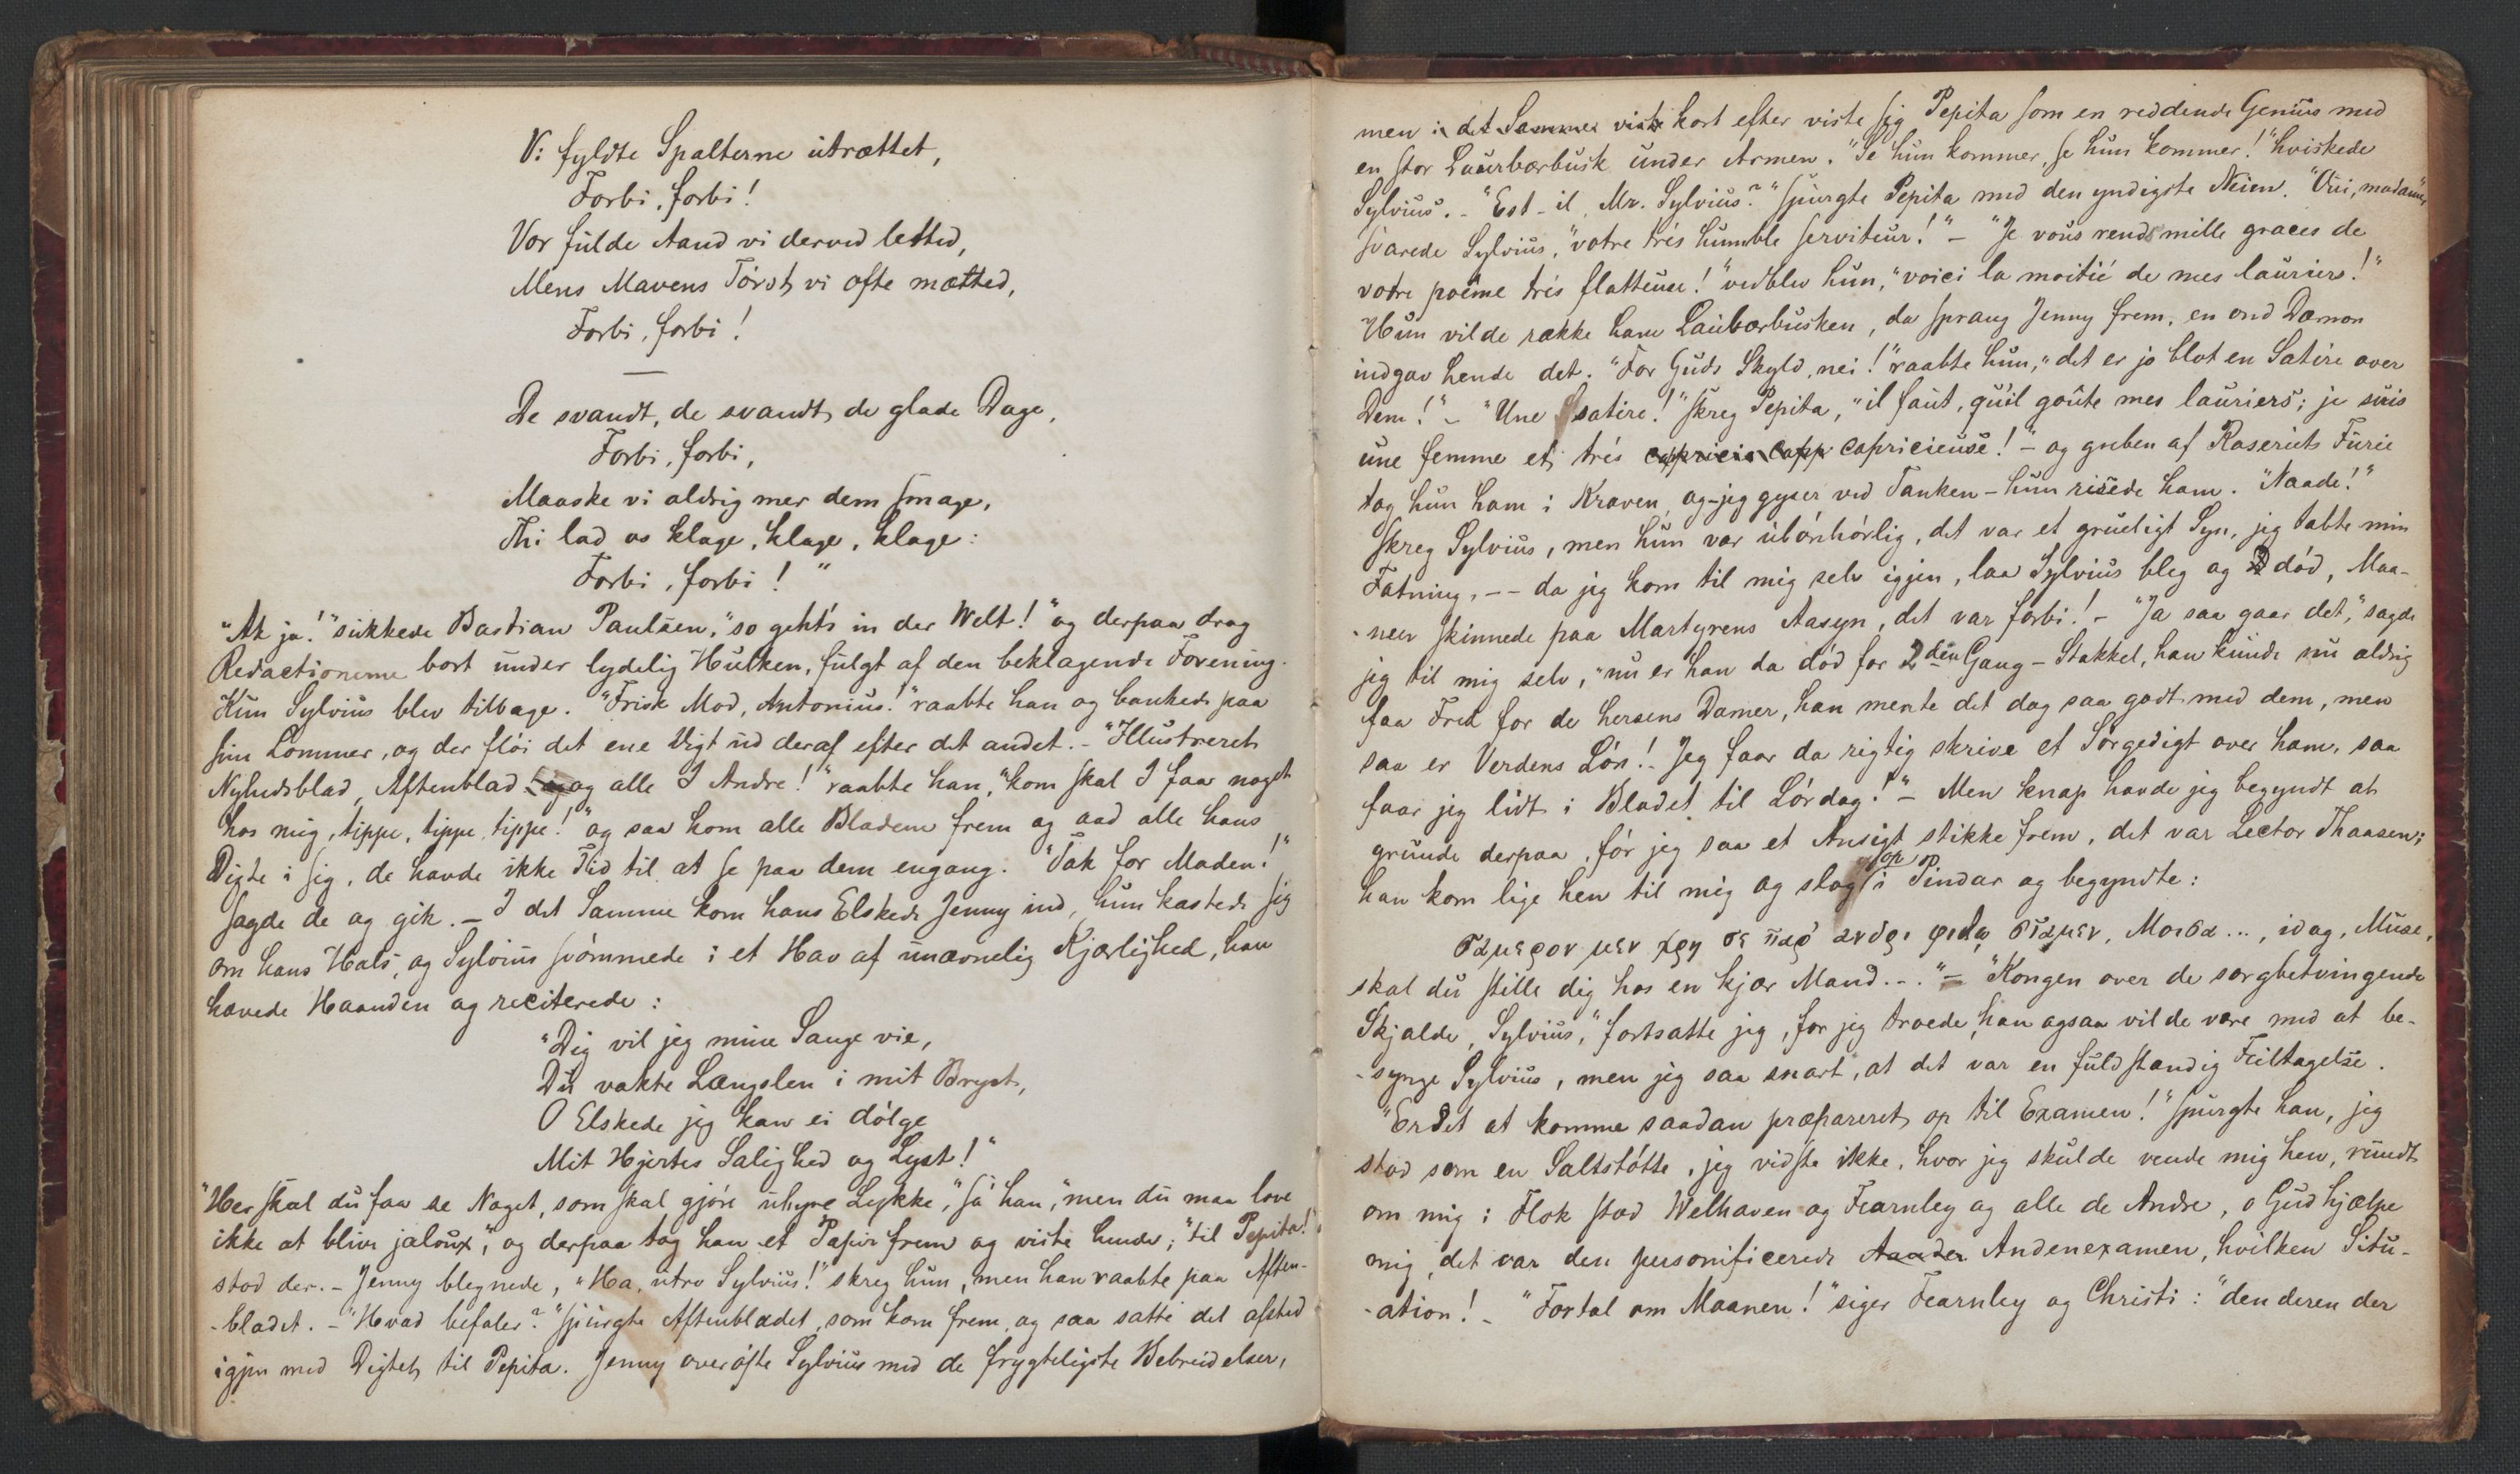 Vi fyldte Spalterne utrættet,
Forbi, forbi!
Vor fulde Aand vi derved letted,
Mens Mavens Törst vi ofte mætted,
Forbi, forbi!
De svandt, de svandt, de glade Dage,
Forbi, forbi,
Maaske vi aldrig mer dem smage,
Thi lad os klage, klage, klage:
Forbi, forbi!"
"Ak ja!" sukkede Bastian Paulsen, "so geht's in der Welt!" og derpaa drog
Redactionerne bort under lydelig Hulken, fulgt af den beklagende Forening.
Kun Sylvius blev tilbage. "Frisk Mod, Antonius!" raabte han og bankede paa
sine Lommer, og der flöi det ene Digt ud deraf efter det andet. - "Illustreret
Nyhedsblad, Aftenblad og og alle I Andre!" raabte han, "kom skal I faa noget
hos mig, tippe, tippe, tippe!" og saa kom alle Bladene frem og aad alle hans
Digte i sig, de havde ikke Tid til at se paa dem engang. "Tak for Maden!"
sagde de og gik. - I det Samme kom hans Elskede Jenny ind, hun kastede sig
om hans Hals, og Sylvius svömmede i et Hav af unævnelig Kjærlighed, han
hævede Haanden og reciterede:
"Dig vil jeg mine Sange vie,
Du vakte Længslen i mit Bryst,
O Elskede jeg kan ei dölge
Mit Hjertes Salighed og Lyst!"
"Her skal du faa se Noget, som skal gjöre uhyre Lykke," sa' han, "men du maa love
ikke at blive jaloux", og derpaa tog han et Papir frem og viste hende; "til Pepita!"
stod der. - Jenny blegnede, "Ha, utro Sylvius!" skreg hun, men han raabte paa Aften-
-bladet. - "Hvad befaler?" spurgte Aftenbladet, som kom frem, og saa satte det afsted
igjen med Digtet til Pepita. Jenny overöste Sylvius med de frygteligste Bebreidelser,
men i det Samme viste kort efter viste sig Pepita som en reddende Genius med
en stor Laurbærbusk under Armen. "Se hun kommer, se hun kommer!" hviskede
Sylvius. - "Est-il, Mr. Sylvius?" spurgte Pepita med den yndigste Neien. "Oui, madame"
svarede Sylvius, "votre trés humble serviteur!" - "Je vous rends mille graces de
votre poême trés flatteuse!" vedblev hun, "voici la moitié de mes lauriers!"
Hun vilde række ham Laubærbusken, da sprang Jenny frem, en ond Dæmon
indgav hende det. "For Guds Skyld, nei!" raabte hun, "det er jo blot en Satire over
Dem!" - "Une satire!" skreg Pepita, "il faut, qu'il goûte mes lauriers; je suis
une femme et trés capricieuse!" - og greben af Raseriets Furie
tog hun ham i Kraven og - jeg gyser ved Tanken - hun risede ham. "Naade!"
skreg Sylvius, men hun var ubönhörlig, det var et grueligt Syn, jeg tabte min
Fatning, -- da jeg kom til mig selv igjen, laa Sylvius bleg og död, Maa-
-nen skinnede paa Martyrens Aasyn, det var forbi! - "Ja saa gaar det," sagde
jeg til mig selv, "nu er han da död for 2den Gang - Stakkel, han kunde nu aldrig
faa Fred for de hersens Damer, han mente det dog saa godt med dem, men
saa er Verdens Lön! - Jeg faar da rigtig skrive et Sörgedigt over ham, saa
faar jeg lidt i Bladet til Lördag!" - Men knap havde jeg begyndt at
grunde derpaa, för jeg saa et Ansigt stikke frem, det var Lector Thaasen;
han kom lige hen til mig og slog op i Pindar og begyndte:
"Σαμερον μεν χρη σε παρ' ανδρι φιλω σταμεν, Μοισα..., idag, Muse,
skal du stille dig hos en kjær Mand..." - "Kongen over de sorgbetvingende
Skjalde, Sylvius," fortsatte jeg, for jeg troede, han ogsaa vilde være med at be-
-synge Sylvius, men jeg saa snart, at det var en fuldstændig Feiltagelse.
"Er det at komme saadan præpareret op til Examen!" spurgte han, jeg
stod som en Saltstötte, jeg vidste ikke, hvor jeg skulde vende mig hen, rundt
om mig i Flok stod Welhaven og Fearnley og alle de Andre, o Gud hjælpe
mig, det var den personificerede Anden Andenexamen, hvilken Situ-
-ation! - "Fortæl om Maanen!" siger Fearnley og Christi: "den deren der